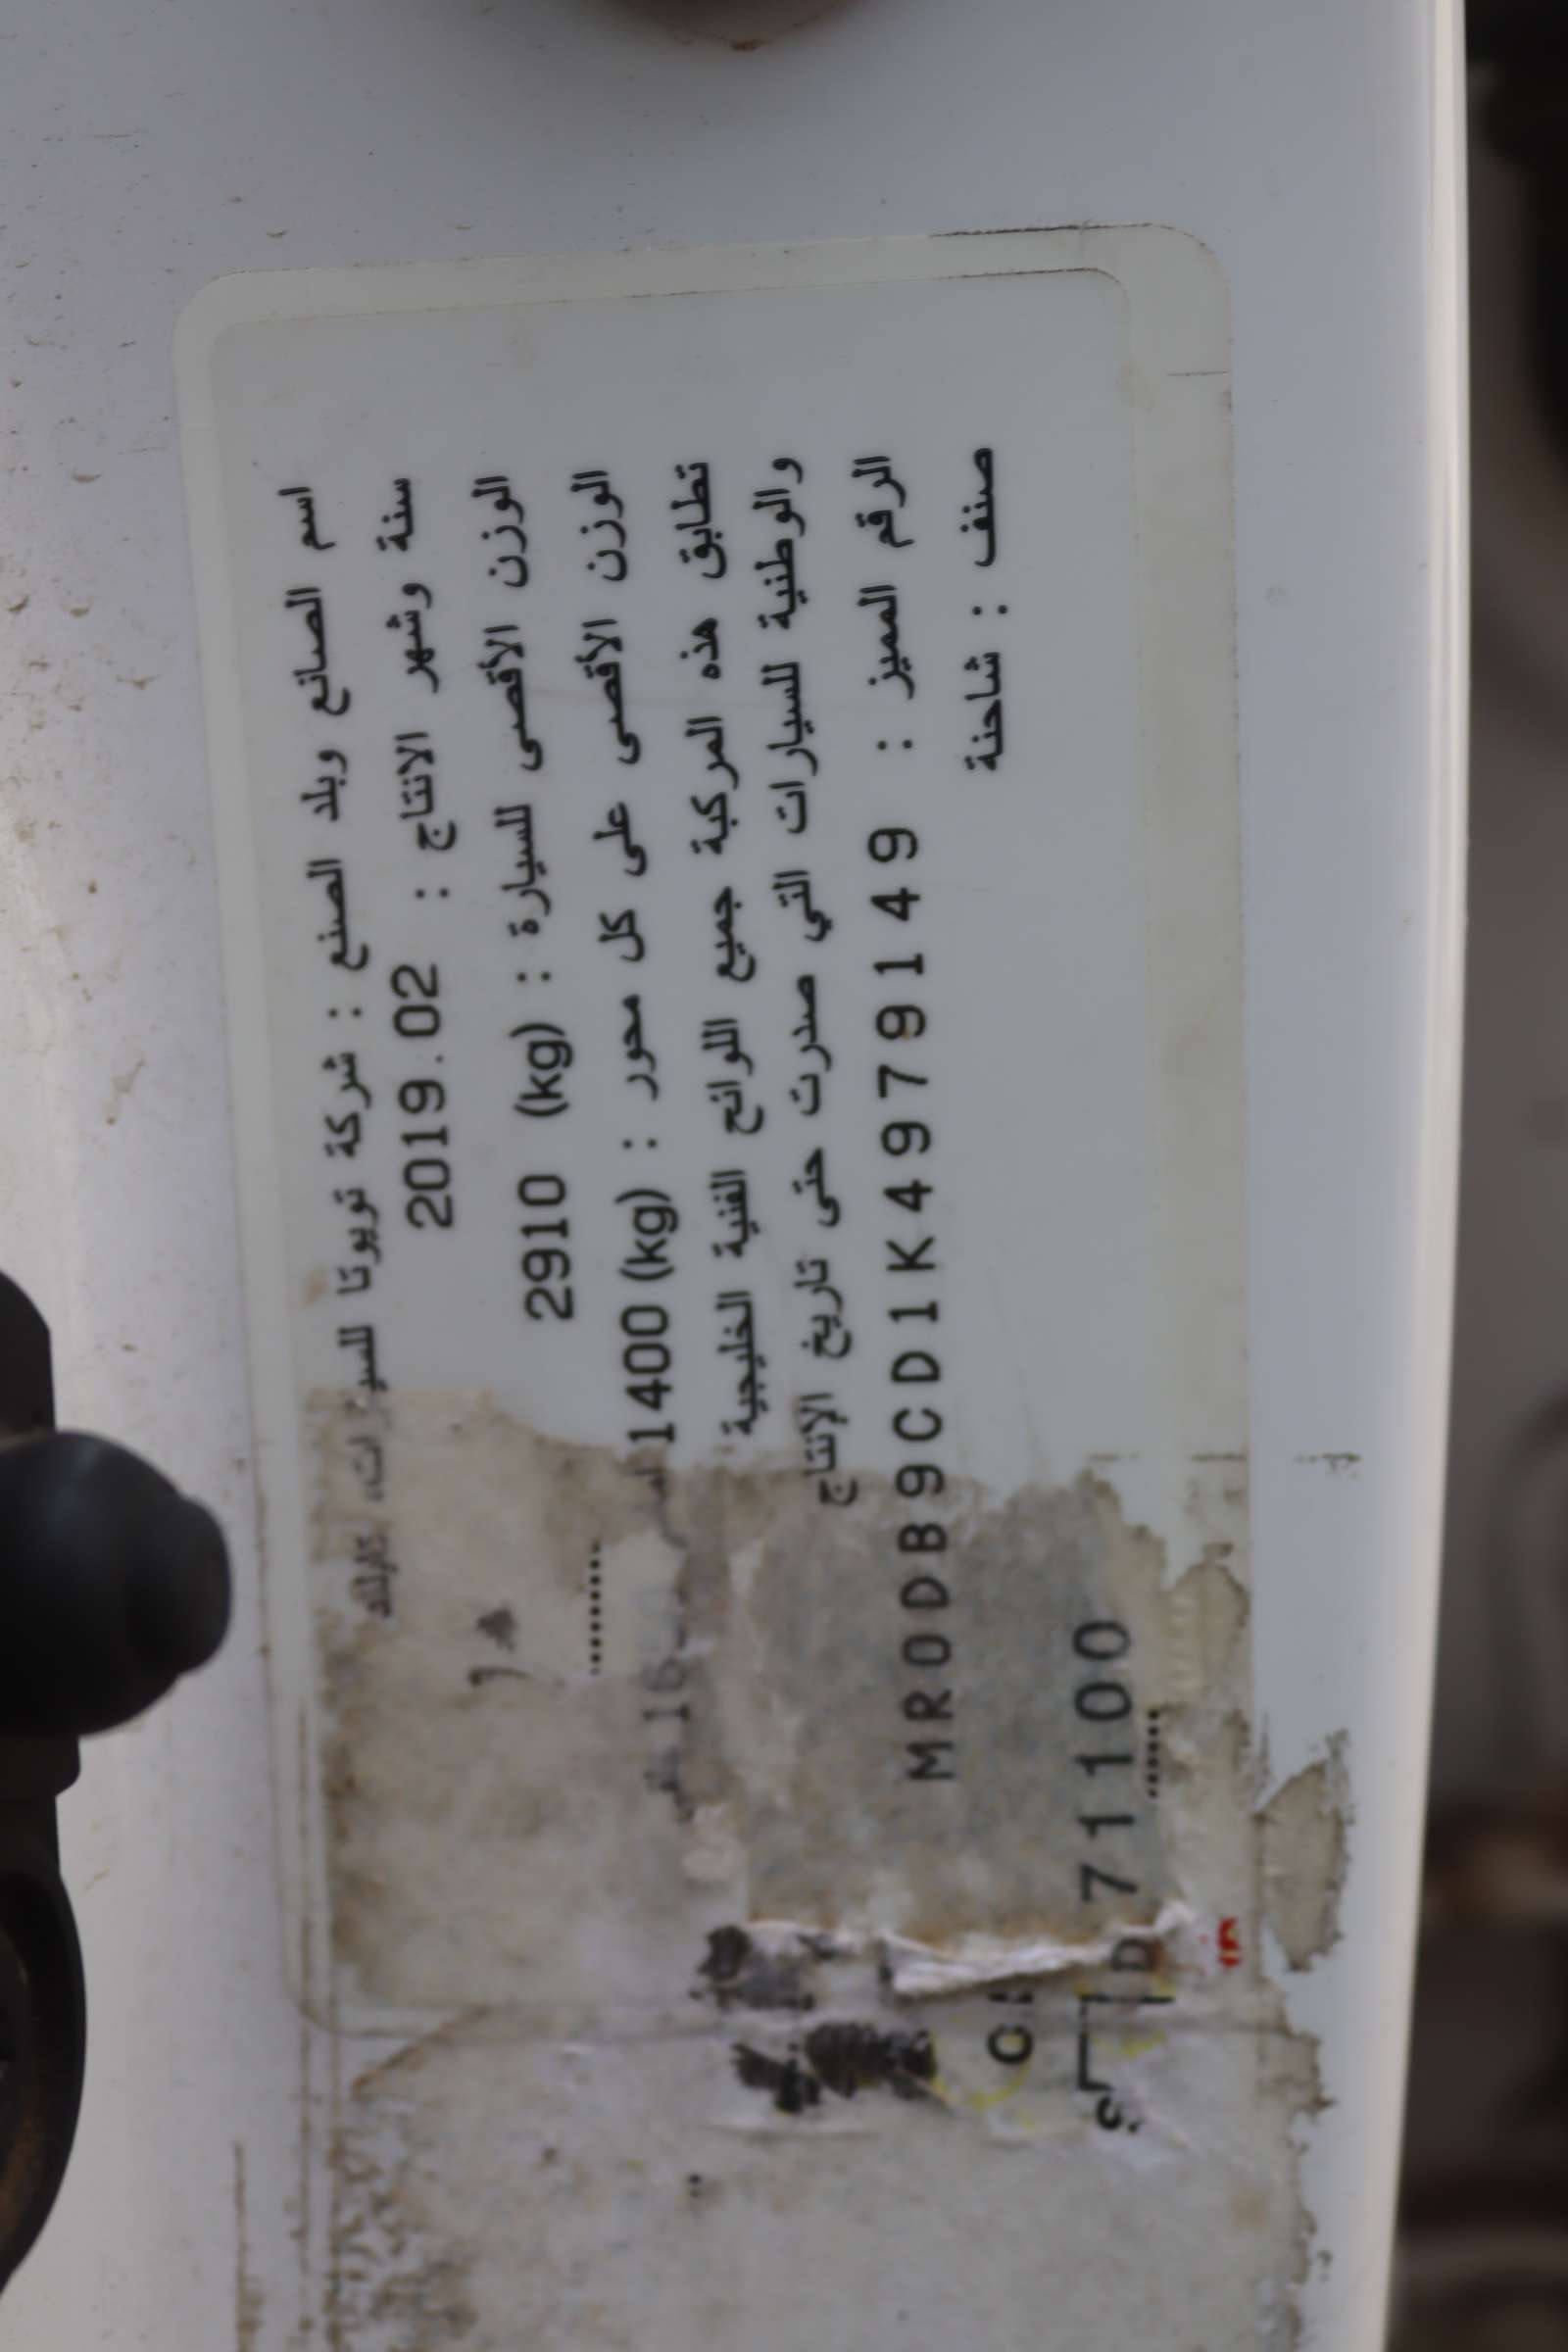 اسم الصانع وبلد الصنع : شركة تويوتا للسيارات، تايلاند
سنة وشهر الانتاج : 2019.02
الوزن الأقصى للسيارة : (kg) 2910
الوزن الأقصى على كل محور : (kg) 1400
تطابق هذه المركبة جميع اللوائح الفنية الخليجية
والوطنية للسيارات التي صدرت حتى تاريخ الإنتاج
الرقم المميز : MR0DB9CD1K4979149
صنف : شاحنة
71100